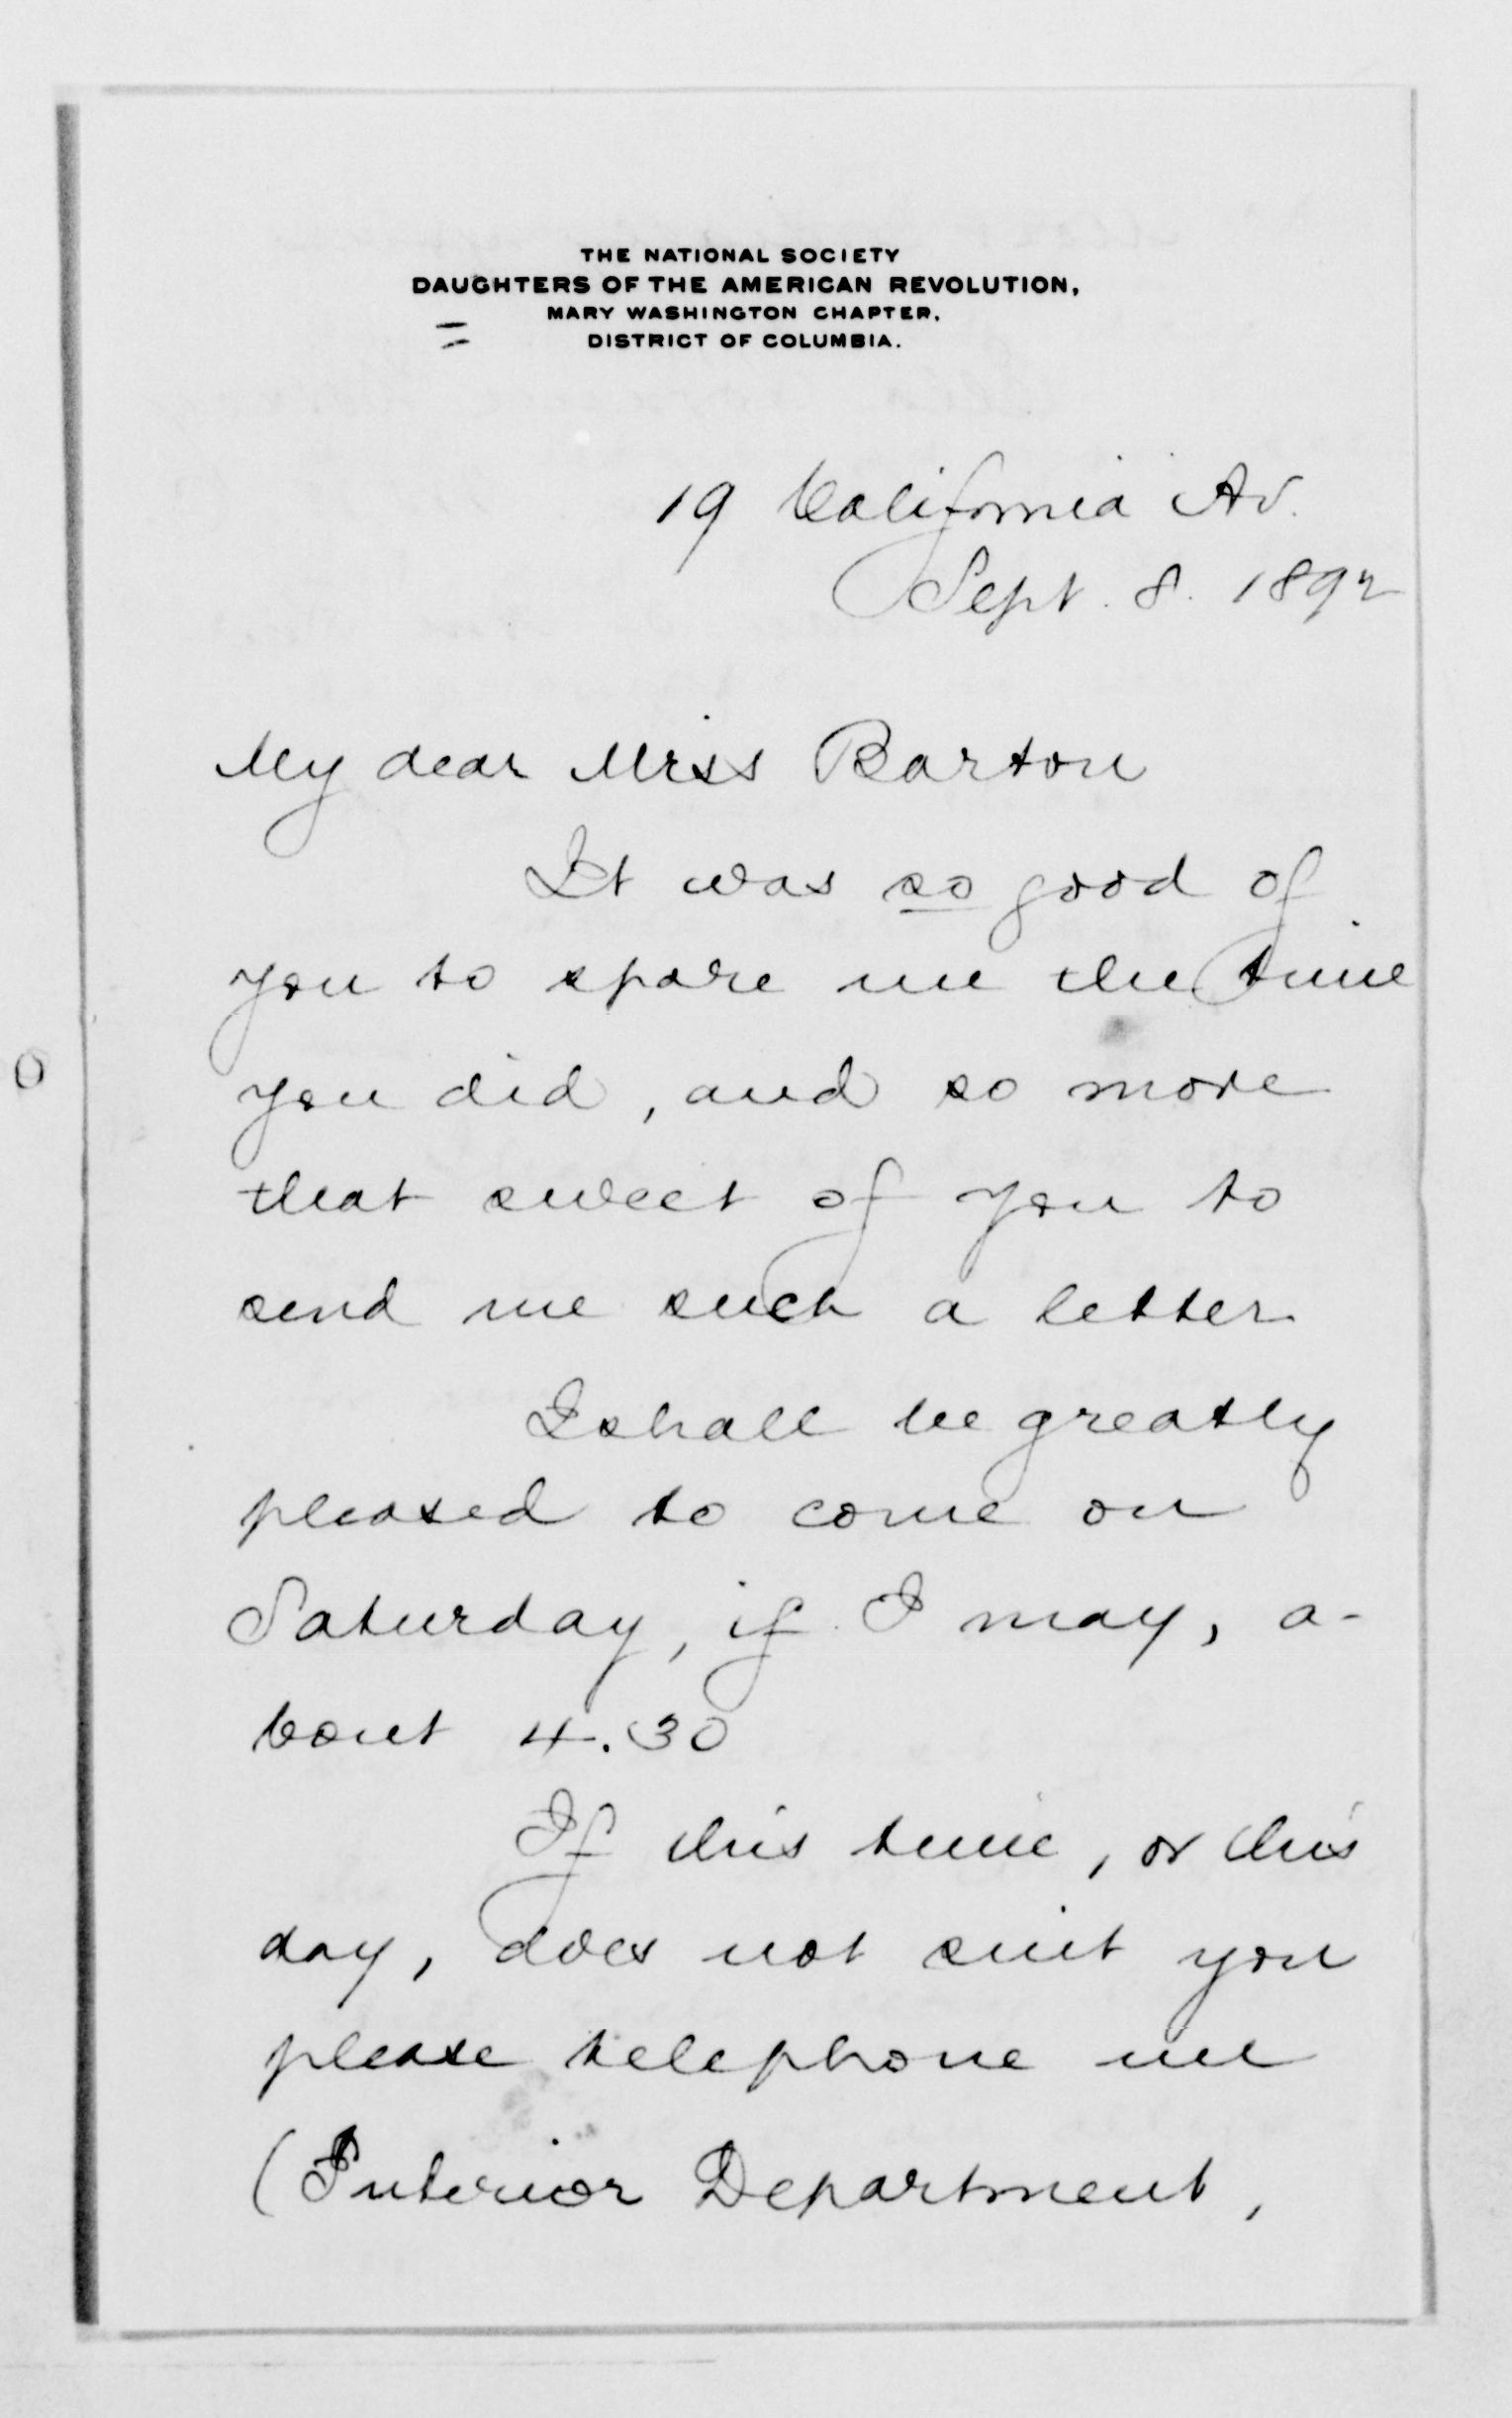 THE NATIONAL SOCIETY
DAUGHTERS OF THE AMERICAN REVOLUTION,
MARY WASHINGTON CHAPTER,
DISTRICT OF COLUMBIA.
19 California Av.
Sept. 8. 1892
My dear Miss Barton
It was so good of
you to spare me the time
you did, and so more
that sweet of you to
send me such a letter.
I shall be greatly
pleased to come on
Saturday, if I may, a-
bout 4.30
If this time, or this
day, does not suit you
please telephone me
(Interior Department,